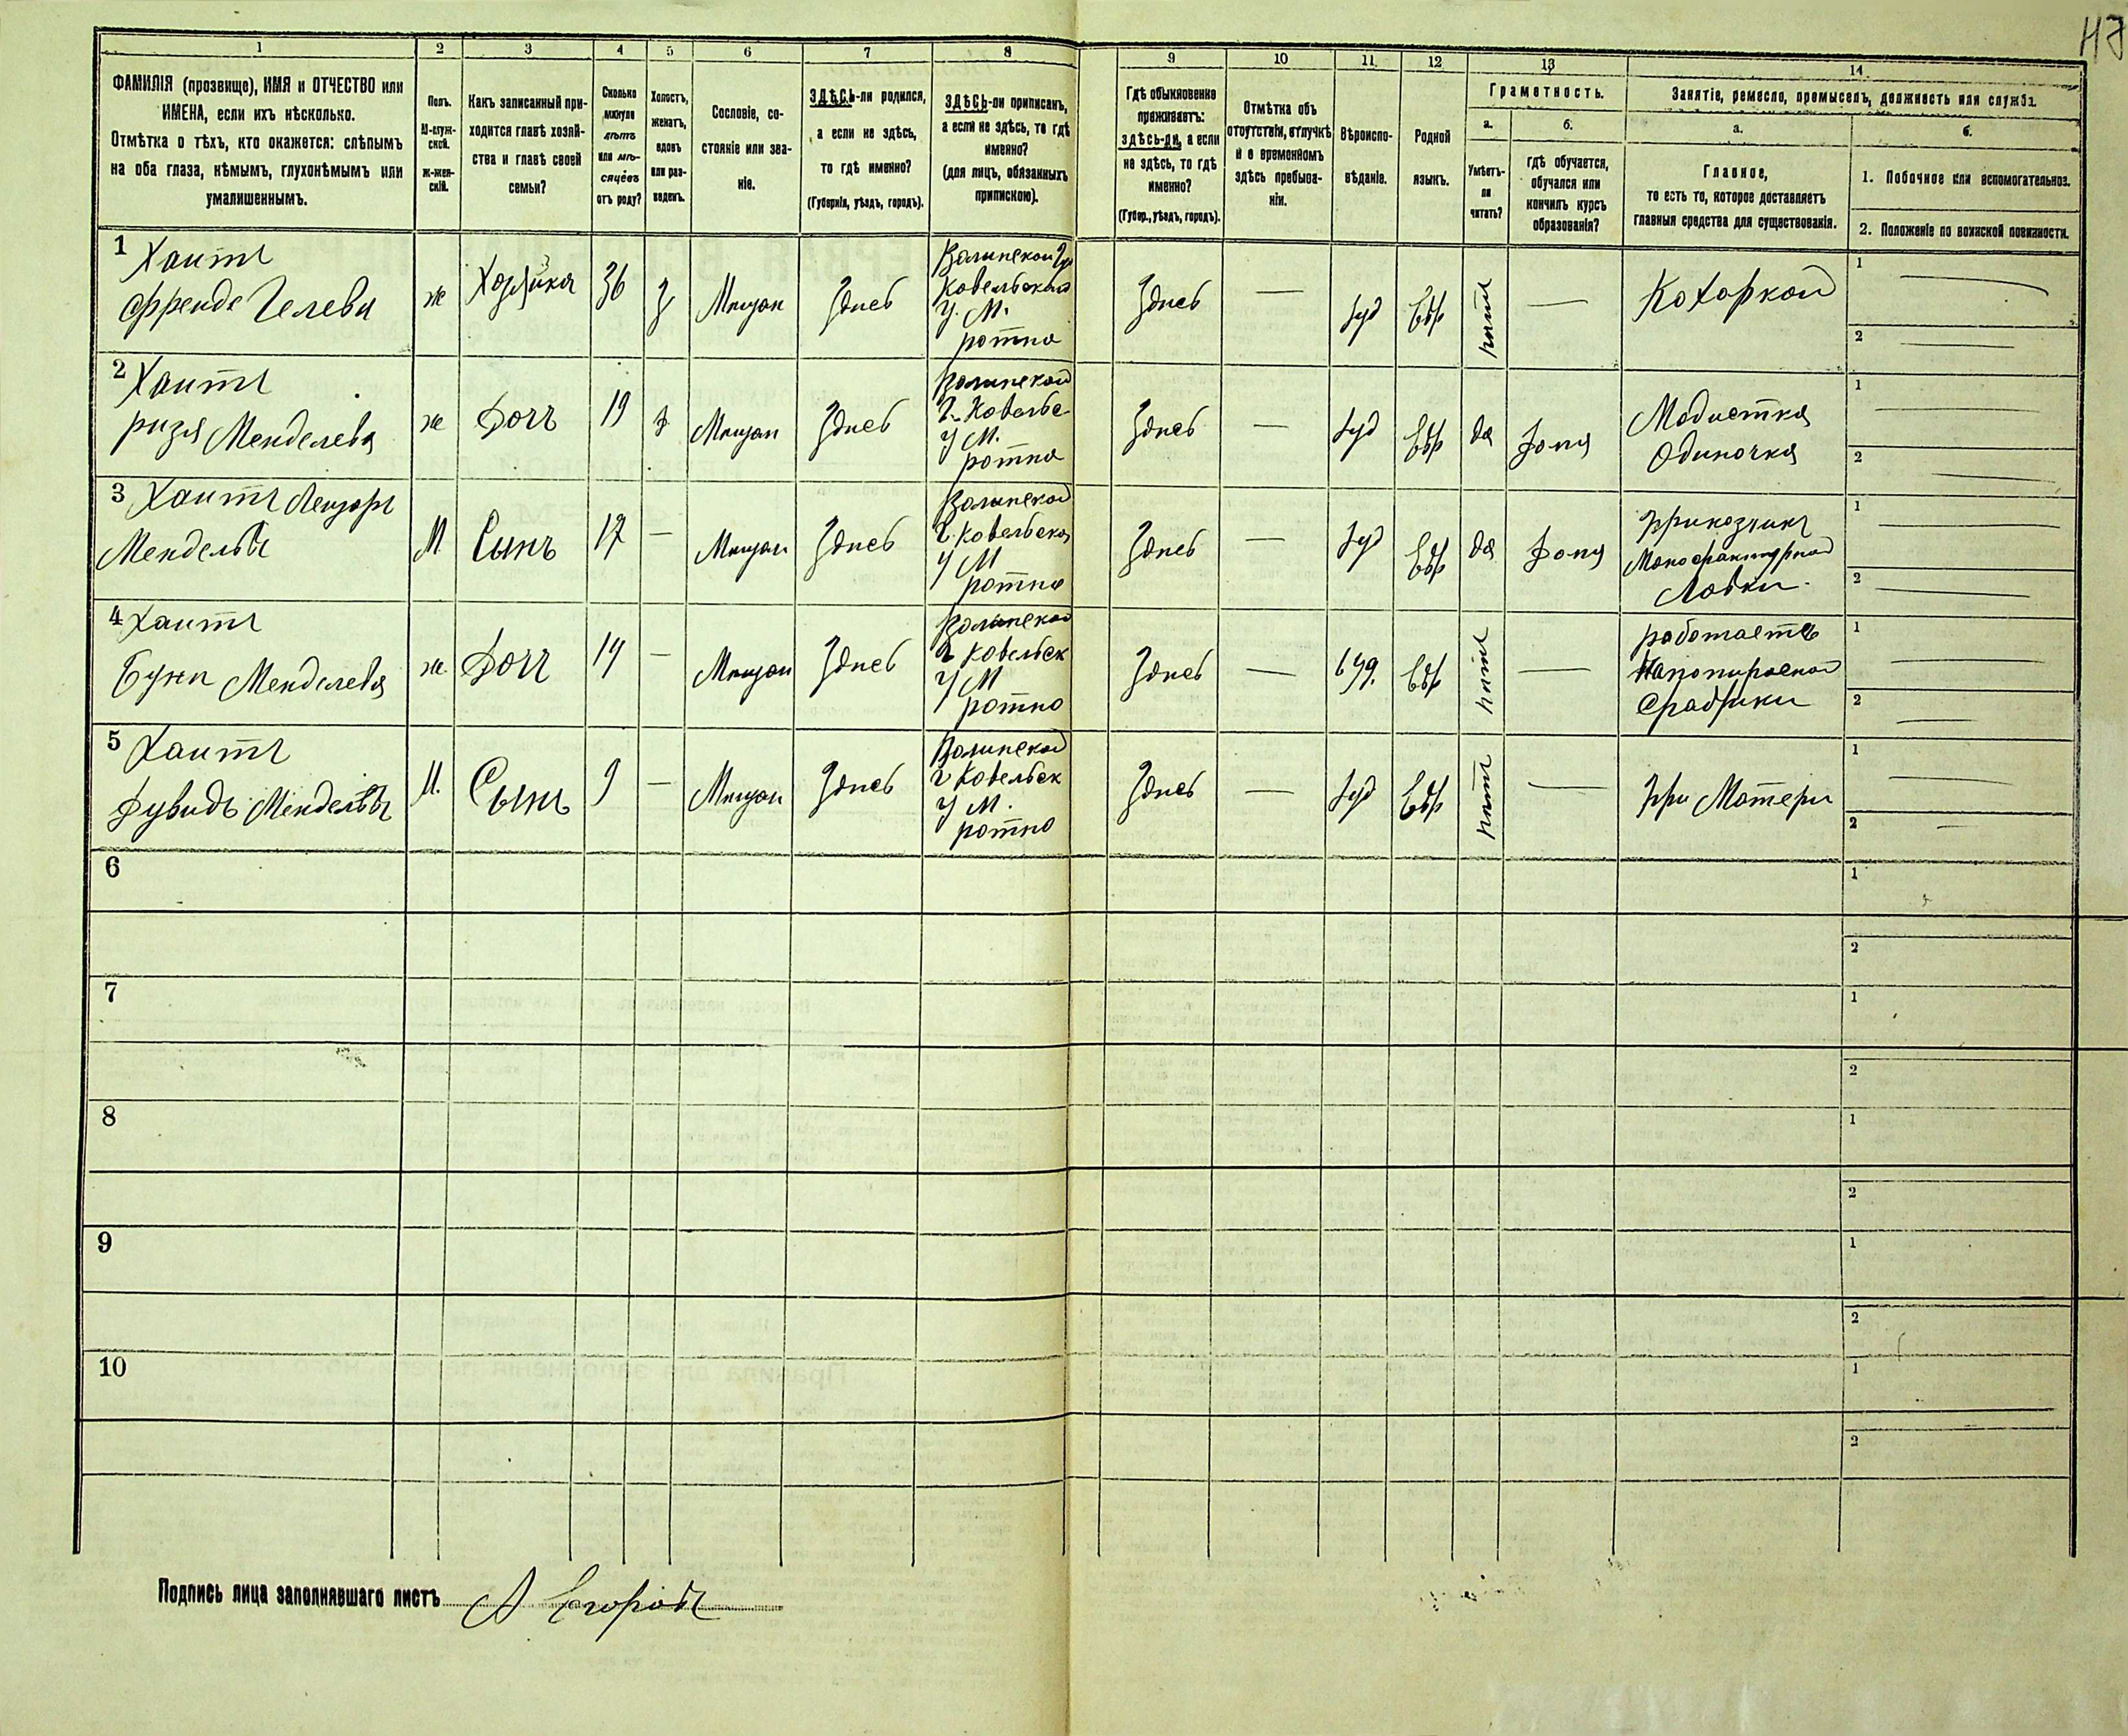 1
2
3
4
5
6
7
8
9
10
11
12
13
14
ФАМИЛІЯ (прозвище), ИМЯ и ОТЧЕСТВО или
ИМЕНА, если ихъ нѣсколько.
Отмѣтка о тѣхъ, кто окажется: слѣпымъ
на оба глаза, нѣмымъ, глухонѣмымъ или
умалишеннымъ.
Полъ.
М-муж-
ской.
ж-жен-
скій.
Какъ записанный при-
ходится главѣ хозяй-
ства и главѣ своей
семьи?
Сколько
минуло
лѣтъ
или мѣ-
сяцевъ
отъ роду?
Холостъ,
женатъ,
вдовъ
или раз-
веденъ.
Сословіе, со-
стояніе или зва-
ніе.
ЗДѢСЬ-ли родился,
а если не здѣсь,
то гдѣ именно?
(Губернія, уѣздъ, городъ).
ЗДѢСЬ-ли приписанъ,
а если не здѣсь, то гдѣ
именно?
(для лицъ, обязанныхъ
припискою).
Гдѣ обыкновенно
проживаетъ:
здѣсь-ли, а если
не здѣсь, то гдѣ
именно?
(Губер., уѣздъ, городъ).
Отмѣтка объ
отсутствіи, отлучкѣ
и о временномъ
здѣсь пребыва-
ніи.
Вѣроиспо-
вѣданіе.
Родной
языкъ.
Грамотность.
а.
Умѣетъ-
ли
читать?
б.
гдѣ обучается,
обучался или
кончилъ курсъ
образованія?
Занятіе, ремесло, промыселъ, должность или служба.
а.
Главное,
то есть то, которое доставляетъ
главныя средства для существованія.
б.
1. Побочное или вспомогательное.
2. Положеніе по воинской повинности.
1 Хаитъ
Френде
ж
Хозяйка
36
Мещан
Здесь
Волинской Гу
Ковельскаго
У. М.
ротно
Здесь
—
Іуд
Евр
нетъ
—
1
2
2 Хаитъ
Менделева
ж
Дочъ
19
Мещан
Здесь
Волинской
Г. Ковельс
У М.
ротно
Здесь
—
Іуд
Евр
да
Дома
Модистка
Одиночка
1
2
3 Хаитъ Лейзоръ
Менделевъ
М
Сынъ
17
—
Мещан
Здесь
Волинской
Г. Ковельска
У М
ротно
Здесь
—
Іуд
Евр
да
Дома
Приказчикъ
Монофактурной
Лавки.
1
2
4 Хаитъ
Менделева
ж
Дочъ
14
—
Мещан
Здесь
Волинской
Г Ковельск
У М
ротно
Здесь
—
Евр
нетъ
—
работаетъ
Напопиросной
Фабрики
1
2
5 Хаитъ
Дувидъ Менделевъ
М.
Сынъ
9
—
Мещан
Здесь
Волинской
Г Ковельск
У М.
ротно
Здесь
—
Іуд
Евр
нетъ
—
При Матери
1
2
6
1
2
7
1
2
8
1
2
9
1
2
10
1
2
Подпись лица заполнявшаго листъ